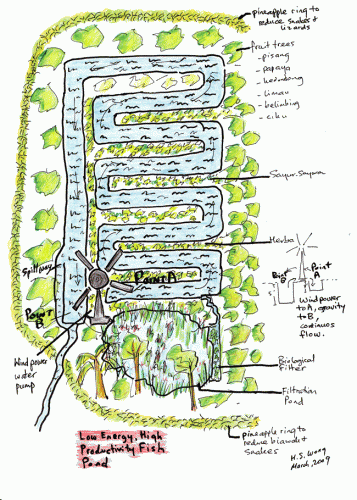 pineapple ring to
reduce snakes &
lizards
fruit trees
- pisang
- papaya
- kedondong
- limau
- belimbing
- ciku
Sayur-sayuran
Herba
Spillway
POINT A
POINT B
Wind power
water
pump
Point B
Point A
Wind power
to A, gravity
to B,
continuos
flow.
Biological
Filter
Filtration
Pond
Low Energy, High
Productivity Fish
Pond
pineapple ring to
reduce biawak &
snakes
H.S. Wong
March, 2009